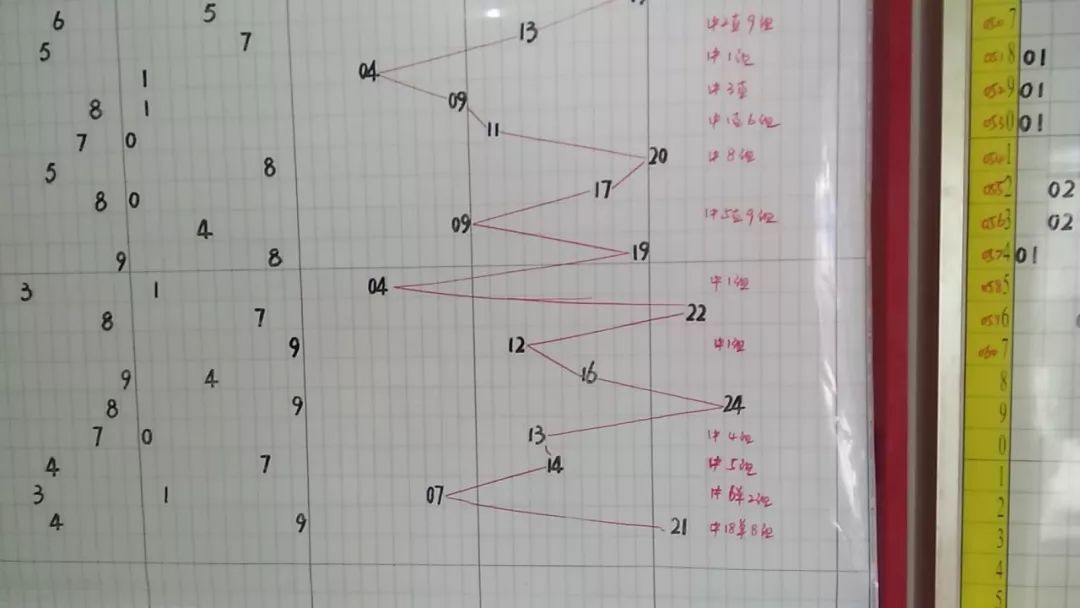 6 5 13 中2直9组
5 7 04 中1组 8 01
1 09 中3直 01
8 1 11 中1直6组 01
7 0 20 中8组 1
5 8 17 2 02
8 0 09 中5直9组 3 02
4 19 4 01
9 8 04 中1组 5
3 1 22 6
8 7 12 中1组 7
9 16 8
9 4 24 9
8 9 13 中4组 0
7 0 14 中5组 1
4 7 07 中6单2组 2
3 1 21 中18单8组 3
4 9 4
5